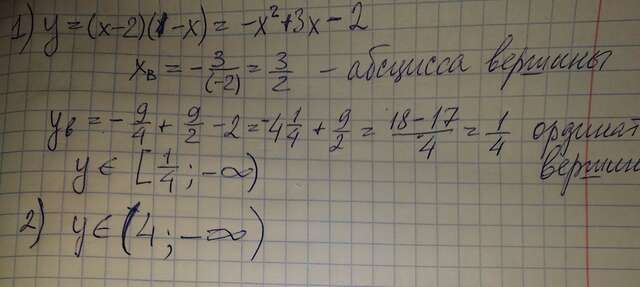 1) y = (x-2)(1-x) = -x²+3x-2
xв = -3/(-2) = 3/2 - абсцисса вершины
yв = -9/4 + 9/2 - 2 = -4 1/4 + 9/2 = (18-17)/4 = 1/4 ординат
y ∈ [1/4 ; -∞) вершин
2) y ∈ (4 ; -∞)